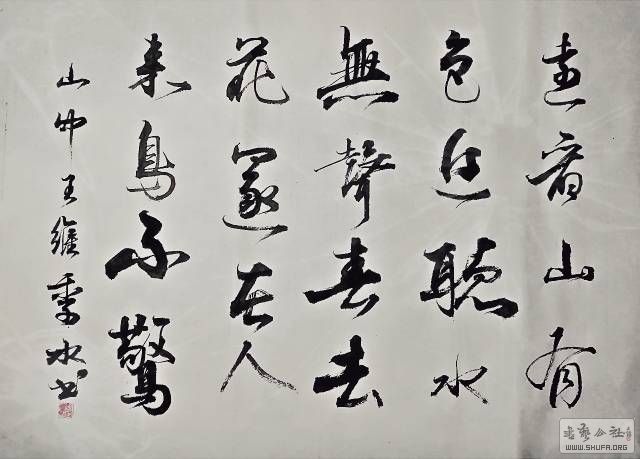 遠看山有
色近聽水
無聲春去
花還在人
来鳥不驚
山中王維季冰书
書藝公社
WWW.SHUFA.ORG